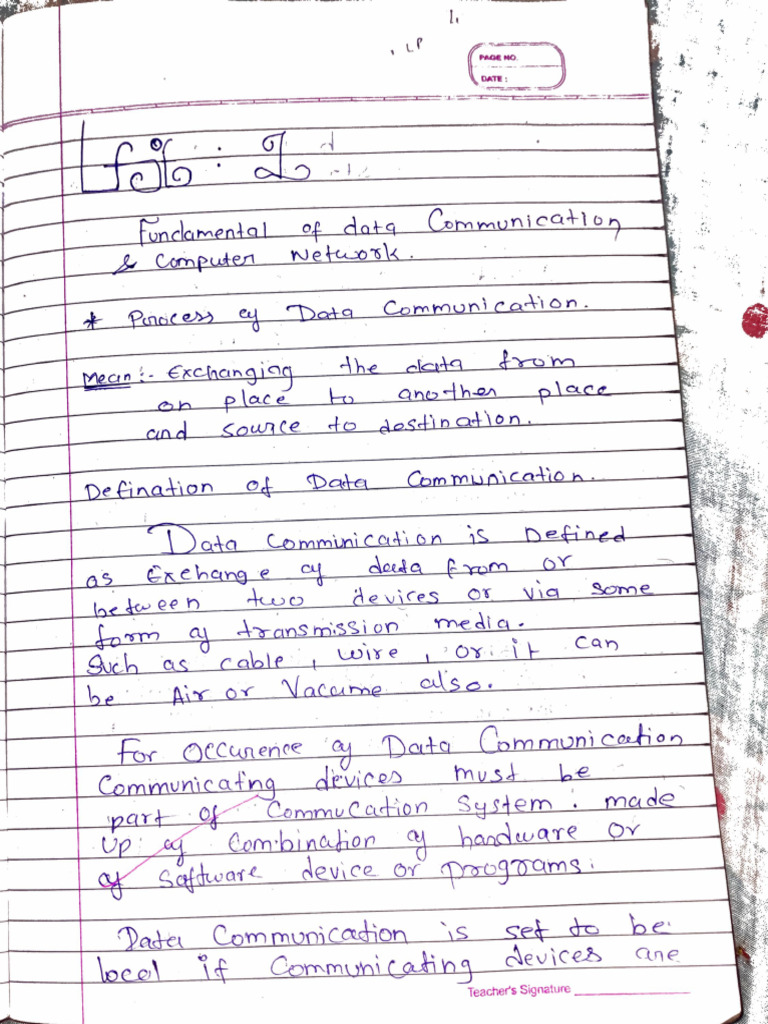 1.
, LP
PAGE NO.
DATE :
Fundamental of data Communication
& Computer Network.
* Process of Data Communication.
Mean :- Exchanging the data from
on place to another place
and source to destination.
Defination of Data Communication.
Data Comminication is Defined
as Exchange of data from or
between two devices or via some
form of transmission media.
Such as cable, wire, or it can
be Air or Vacume also.
For Occurence of Data Communication
Communicating devices must be
part of Commucation System. made
up of Combination of handware or
of Saftware device or programs.
Data Communication is set to be
local if Communicating devices are
Teacher's Signature